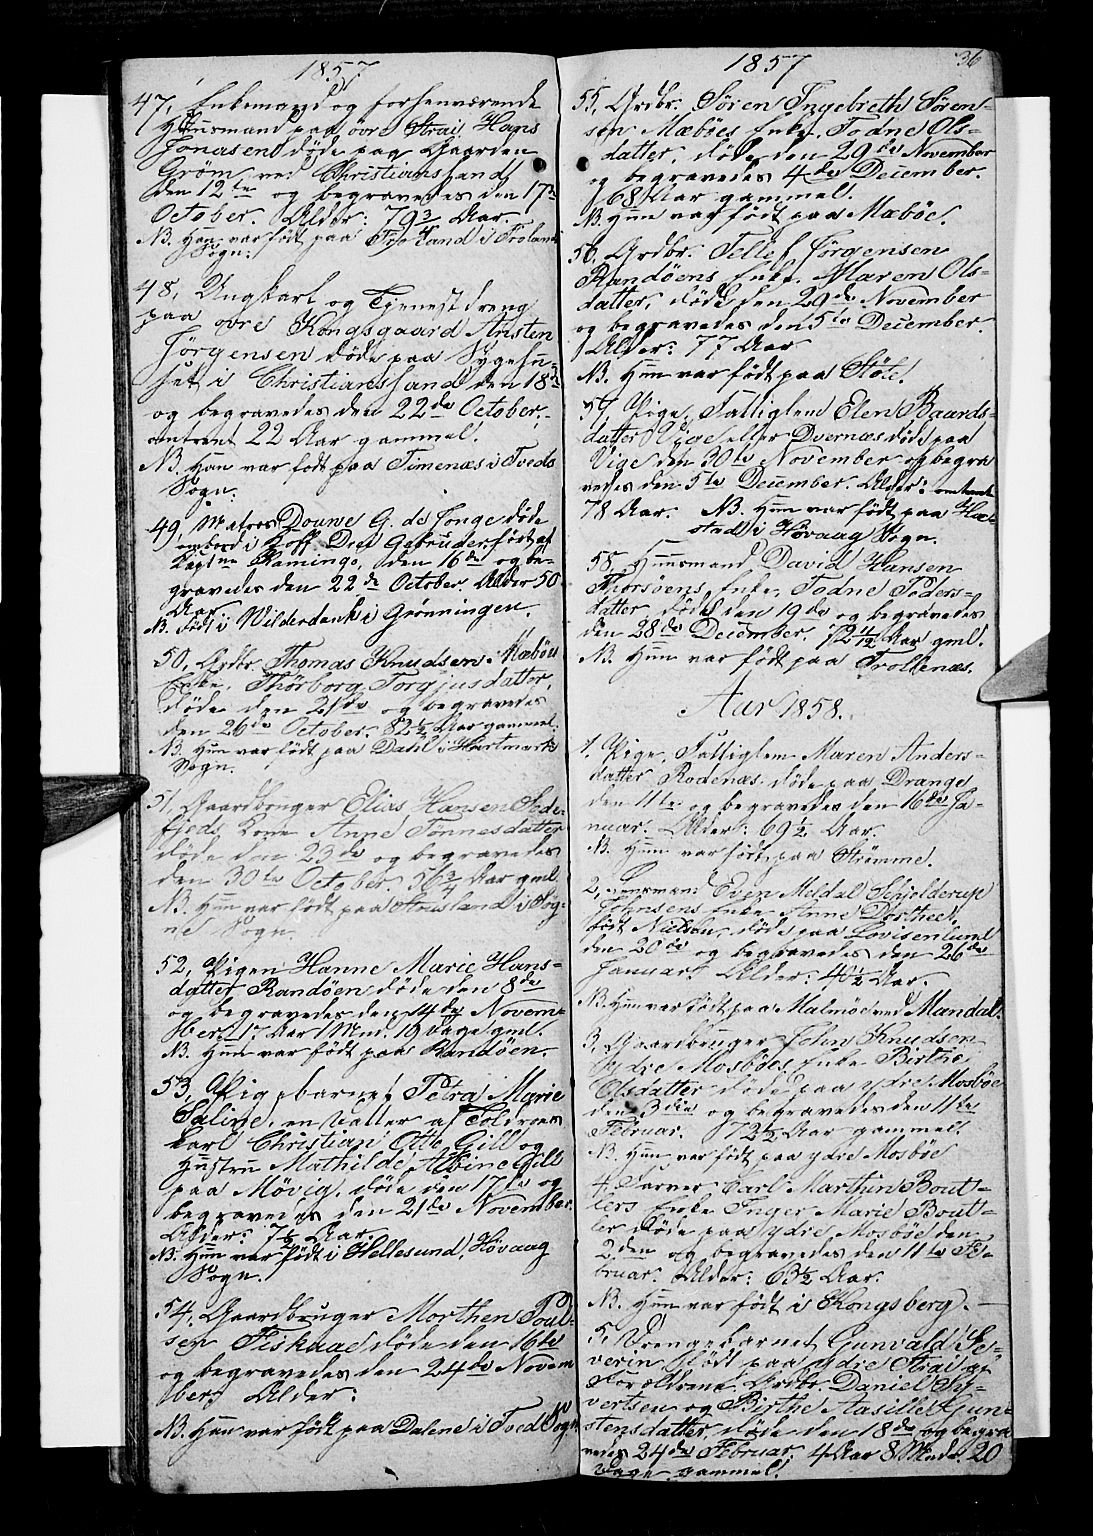 1857
47, Enkemand og forhenværende
Huusmand paa øvre Strai Hans
Jonasen døde paa Gaarden
Grøm ved Christianssand
den 12te og begravedes den 17de
October. Alder: 79 3/4 Aar.
NB. Han var født paa i Froland
Sogn.
48, Ungkarl og Tjenestdreng
paa øvre Kongsgaard Ansten
Jörgensen døde paa Sygehu-
set i Christianssand den 18de
og begravedes den 22de October,
omtrent 22 Aar gammel.
NB. Han var født paa Timenæs i Tveds
Sogn.
49, Matros Douwe G. de Jonge døde
ombord i Koff Drei Gebrüder, født af
Captne Flamingo, den 16de og be-
gravedes den 22de October. Alder 50
Aar.
NB. Født i Wilderdank i Grønningen.
50, Grdbr. Thomas Knudsen Mæbøes
Enke, Thorborg Torgjusdatter,
døde den 21de og begravedes
den 26de October. 82 1/2 Aar gammel.
NB. Hun var født paa Dahl i Hartmark
Sogn.
51, Gaardbruger Elias Hansen
fjeds Kone Anne Tønnesdatter
døde den 23de og begravedes
den 30te October. 56 3/4 Aar gml.
NB. Hun var født paa Strisland i Søg-
ne Sogn.
52, Pigen Hanne Marie Hans-
datter Randøen døde den 8de
og begravedes den 14de Novem-
ber. 17 Aar 1 Md. 19 Dage gml.
NB. Hun var født paa Randøen.
53, Pigebarnet Petra Marie
Saline, en Datter af Toldroes
karl Christian Otte Gill og
Hustru Mathilde Albine Gill
paa Møvig, døde den 17de og
begravedes den 21de November.
Alder: 7 1/2 Aar.
NB. Hun var født i Hellesund, Høvaag
Sogn.
54, Gaardbruger Morthen Poul-
sen Fiskaae døde den 16de
og begravedes den 24de Novem
ber. Alder:
NB. Han var født paa Dalene i Tved Sogn.
1857
36
55, Grdbr. Søren Ingebreth Sören-
sen Mæbøes Enke, Todne Ols-
datter, døde den 29de November
og begravedes 4de December.
68 Aar gammel.
NB. Hun var født paa Mæbøe.
56, Grdbr. Tellef Jørgensen
Randøens Enke, Maren Ols-
datter, døde den 29de November
og begravedes den 5te December.
Alder: 77 Aar
NB. Hun var født paa Støle.
57, Pige, Fattiglem Elen Baards-
datter Vige eller Dvernæs døde paa
Vige den 30te November og begra
vedes den 5te December. Alder: omtrent
78 Aar. NB. Hun var født paa
stad i Høvaag Sogn.
58, Huusmand David Hansen
Thorsøens Enke, Todne Peders-
datter døde den 19de og begravedes
den 28de December. 72 11/12 Aar gml.
NB. Hun var født paa Trolldnæs.
Aar 1858.
1, Pige, Fattiglem Maren Anders-
datter Rodenæs døde paa Drange
den 11te og begravedes den 16de Ja-
nuar. Alder: 69 1/2 Aar.
NB. Hun var født paa Strømme.
2, Lensmand Even Meldal Schjelderup
Johnsens Enke Anne Dorthea,
født Nielsen, døde paa Lovisenlund
den 20de og begravedes den 26de
Januar. Alder: 40 1/2 Aar.
NB. Hun var født paa Malmøe ved Mandal.
3, Gaardbruger John Knudsen
ydre Mosbøes Enke Birthe
Olsdatter døde paa ydre Mosbøe
den 3die og begravedes den 11te
Februar. 72 1/2 Aar gammel.
NB. Hun var født paa ydre Mosbøe
4, Farver Carl Marthin Bout-
lers Enke Inger Marie Bout-
ler døde paa ydre Mosbøe den
2den og begravedes den 11te Fe-
bruar. Alder: 63 1/2 Aar.
NB. Hun var født i Kongsberg.
5, Drengebarnet Gunvald Se-
verin født paa ydre Strai af
Forældrene Grdbr. Daniel Sy-
vertsen og Birthe Aasille Gun-
stensdatter, døde den 18de og begra
vedes 24de Februar. 4 Aar 8 Mdr. 20
Dage gammel.